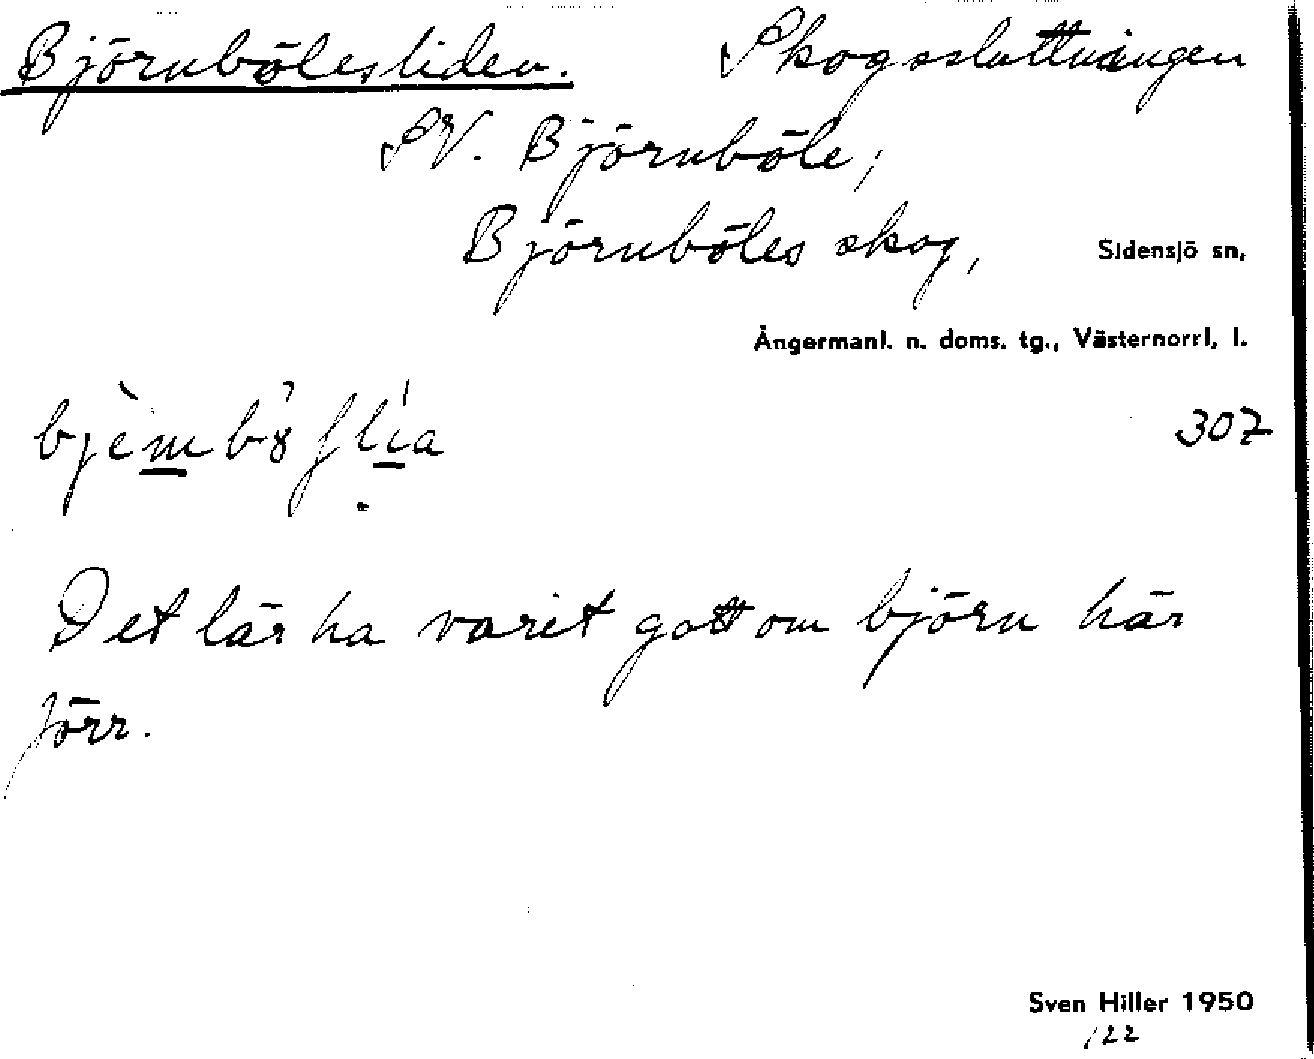 Björnbölesliden. Skogssluttningen
SV. Björnböle;
Björnböles skog, Sidensjö sn,
Ångermanl. n. doms. tg., Västernorrl, l.
307
Det lär ha varit gott om björn här
förr.
Sven Hiller 1950
122